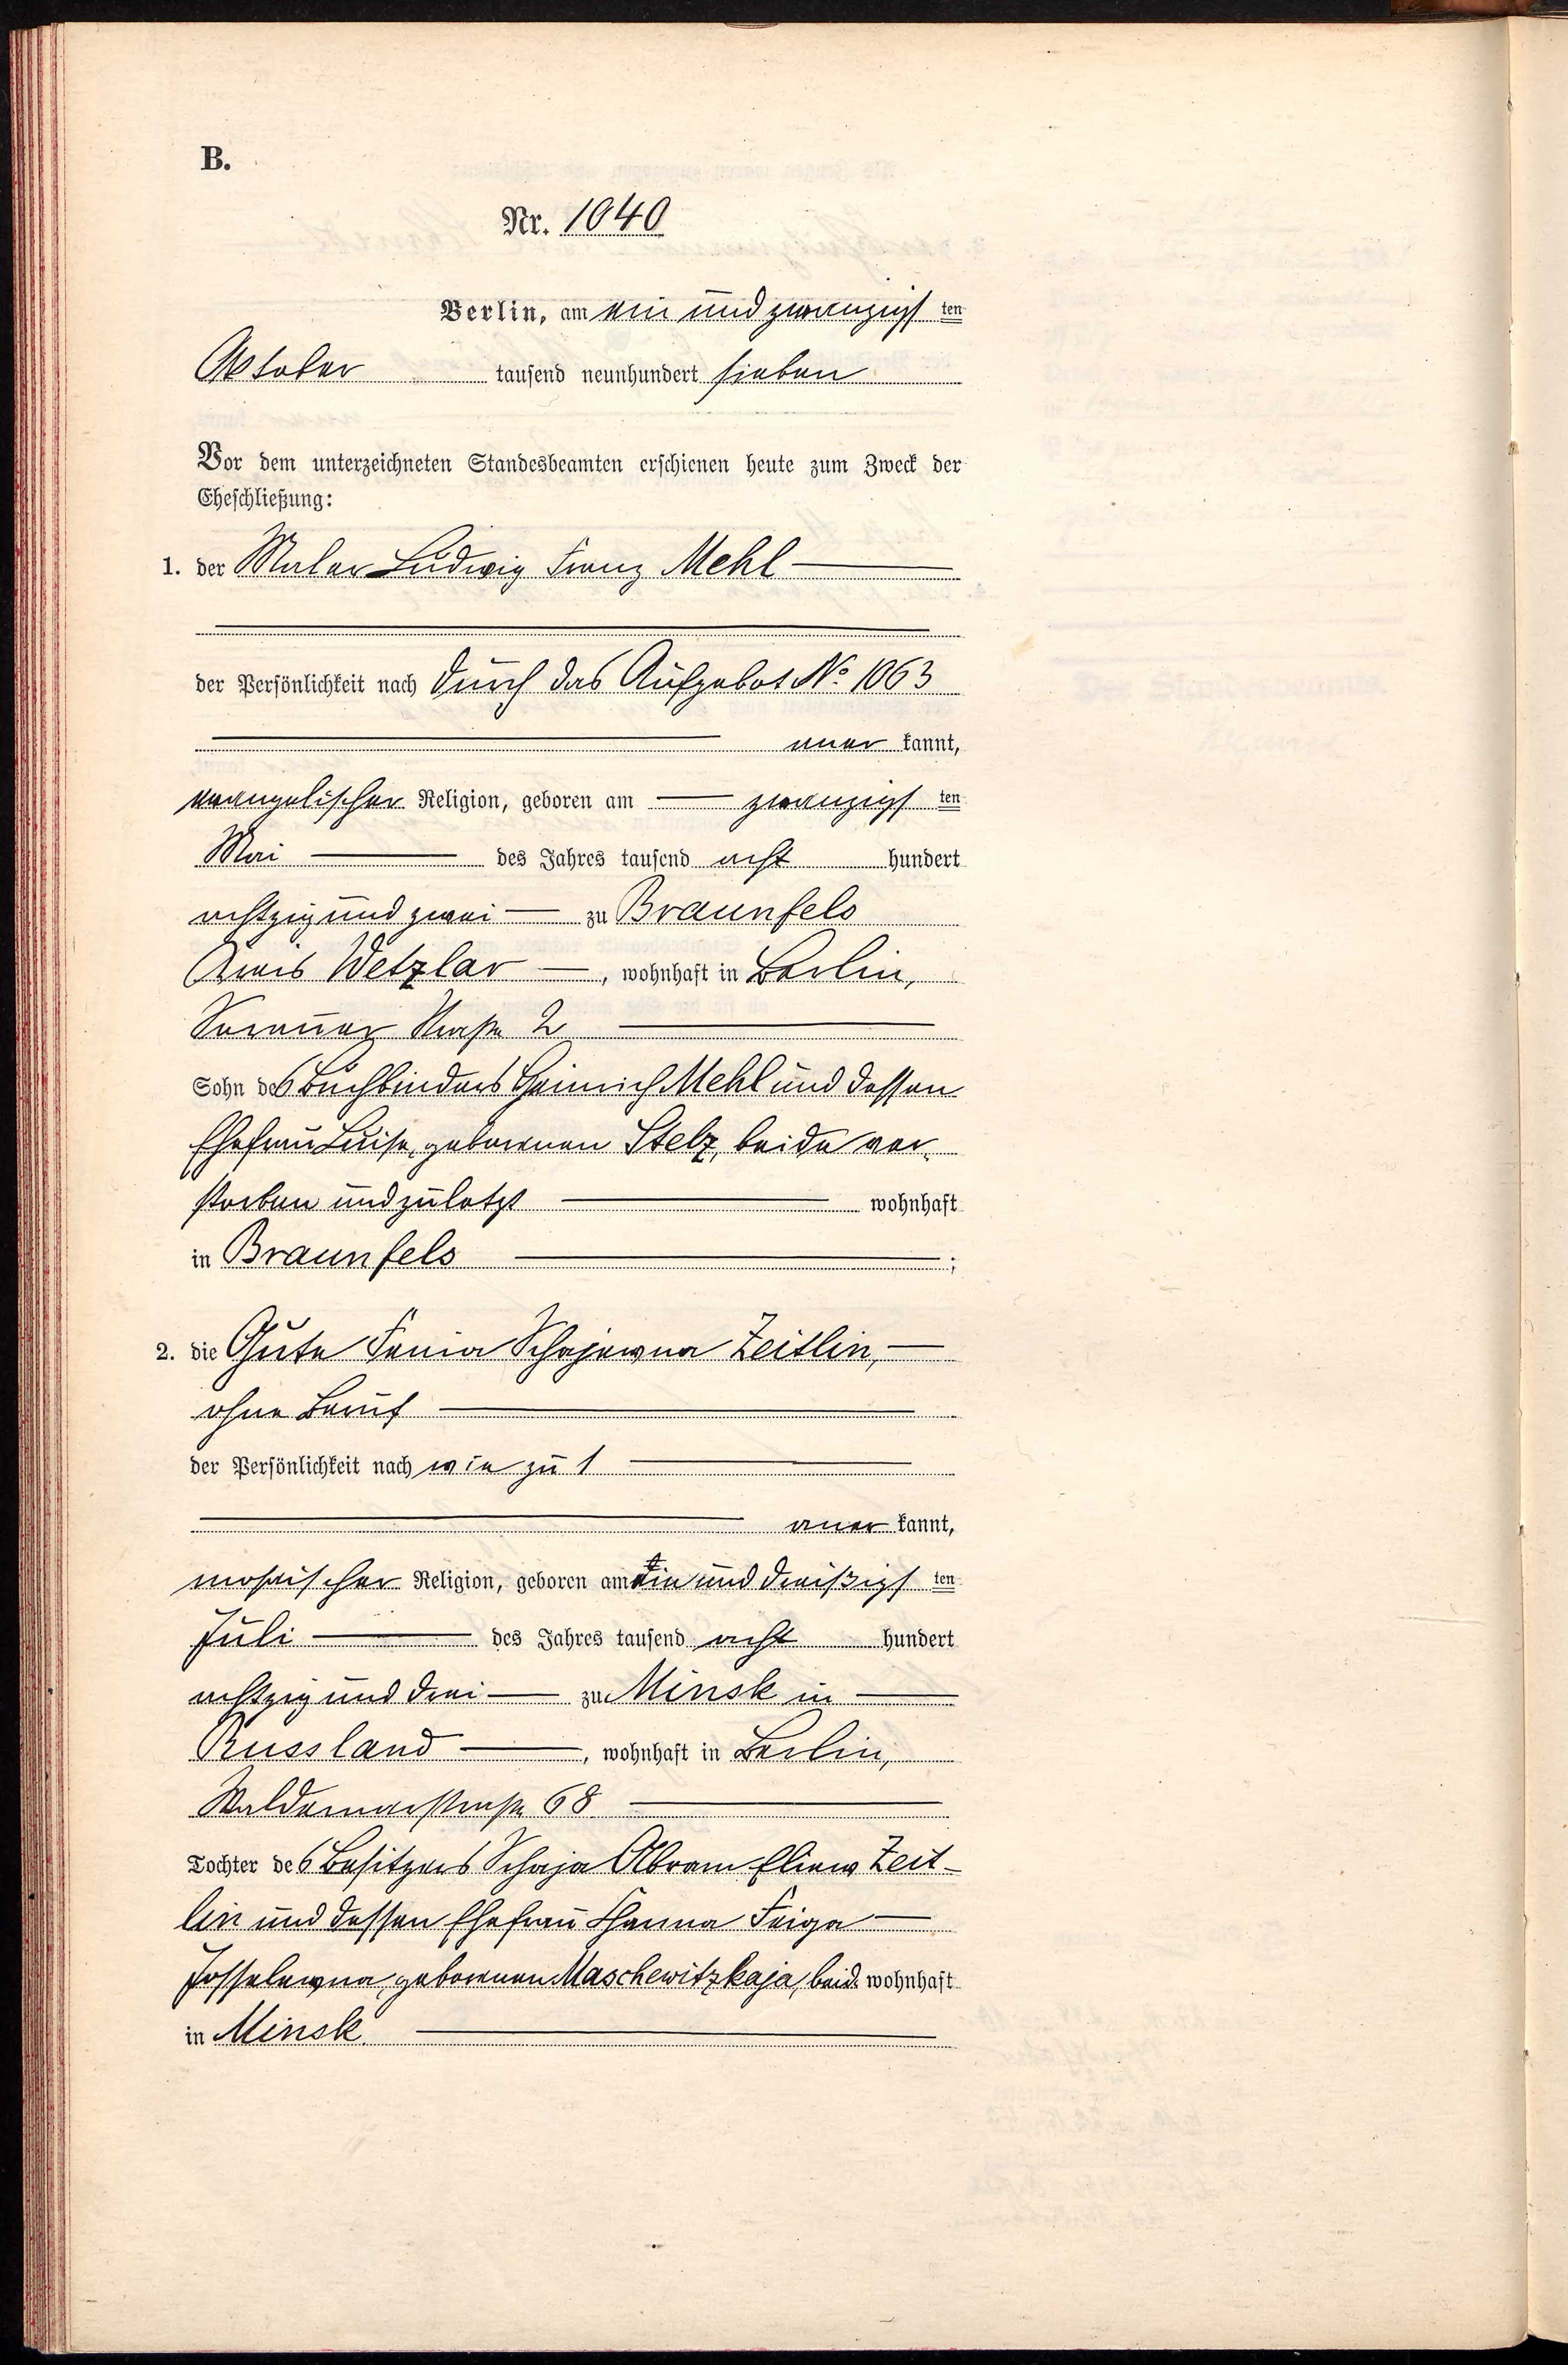 B.
Nr. 1040
Berlin, am ein und zwanzigsten
Oktober tausend neunhundert sieben
Vor dem unterzeichneten Standesbeamten erschienen heute zum Zweck der
Eheschließung:
1. der Maler Ludwig Franz Mehl
der Persönlichkeit nach durch das Aufgebot No 1063
anerkannt,
evangelischer Religion, geboren am zwanzigsten
Mai des Jahres tausend acht hundert
achtzig und zwei zu Braunfels
Kreis Wetzlar, wohnhaft in Berlin,
Sorauer Straße 2
Sohn des Buchbinders Heinrich Mehl und dessen
Ehefrau Luise, geborenen Stelz, beide ver-
storben und zuletzt wohnhaft
in Braunfels;
2. die Gute Fania Schajewna Zeitlin,
ohne Beruf
der Persönlichkeit nach wie zu 1
anerkannt,
mosaischer Religion, geboren am ein und dreißigsten
Juli des Jahres tausend acht hundert
achtzig und drei zu Minsk in
Russland, wohnhaft in Berlin,
Waldemarstraße 68
Tochter des Besitzers Schaja Abram Eliew Zeit-
lin und dessen Ehefrau Channa Feiga
Josselewna, geborenen Maschewitzkaja, beide wohnhaft
in Minsk.